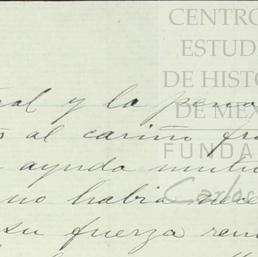 CENTRO
ESTUD
DE HISTO
DE MEX
FUNDA
Carlos
ral y la pena
al cariño fra
ayuda mutu
no habia nece
su fuerza rem